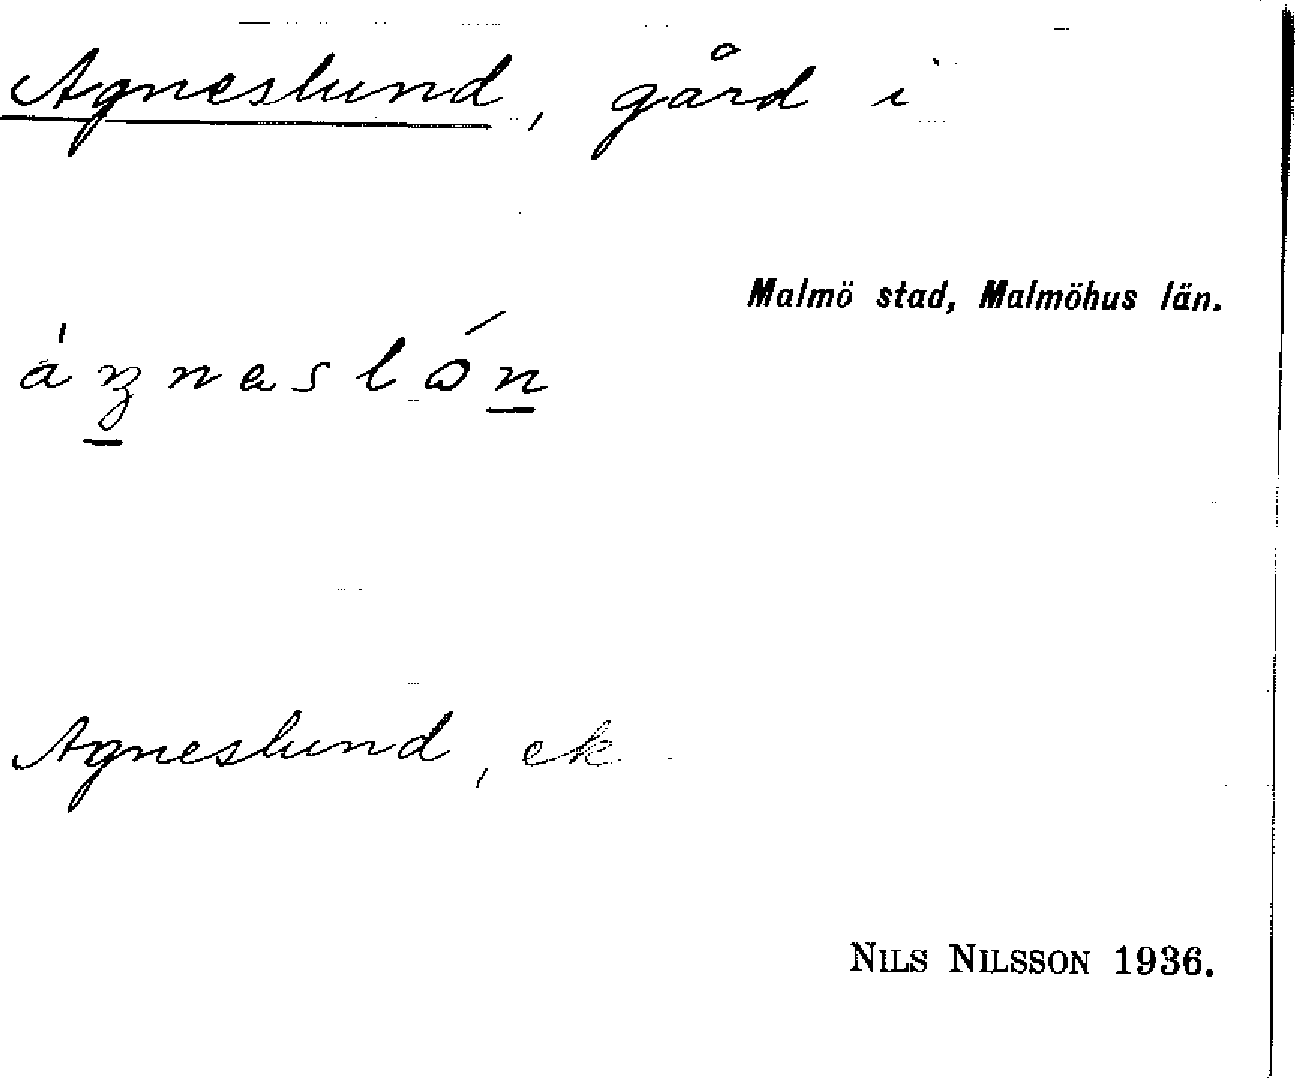 Agneslund, gård i
Malmö stad, Malmöhus län.
Agneslund, ek.
NILS NILSSON 1936.